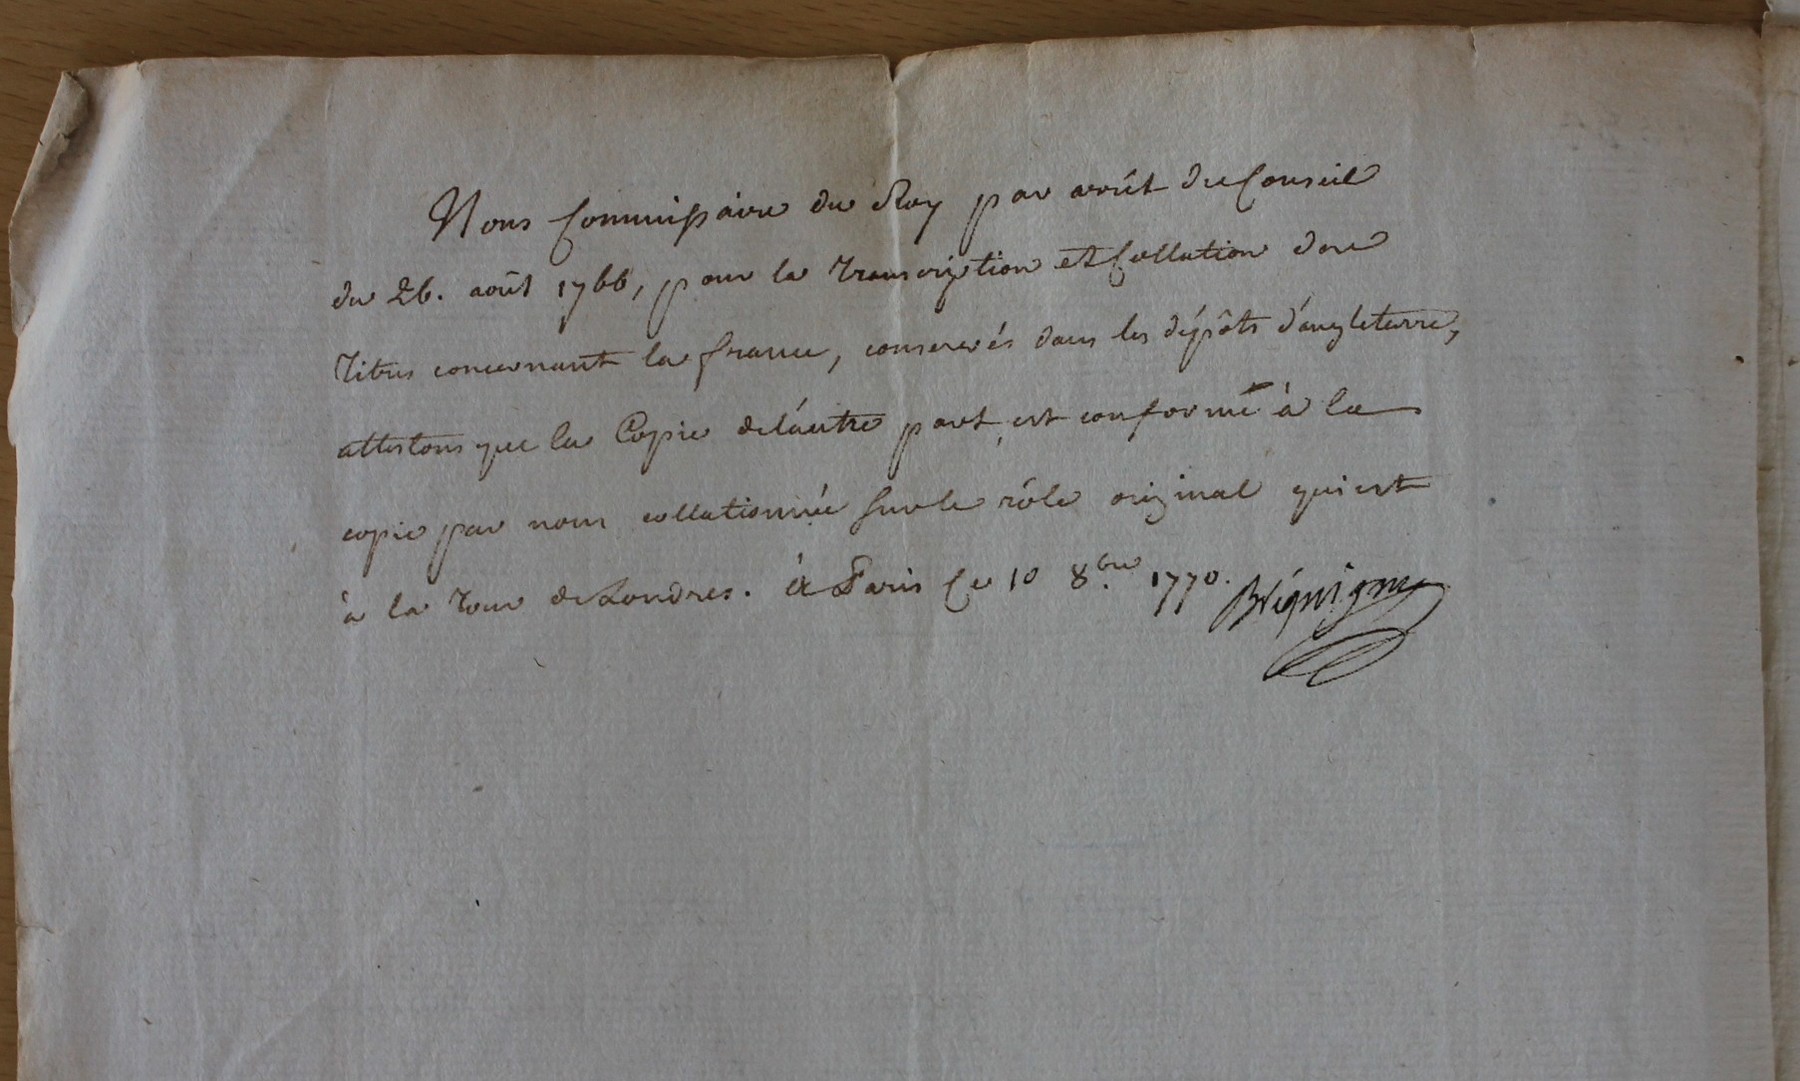 Nous Commissaire du Roy par arrêt du Conseil
du 26. août 1766, pour la Transcription et Collation des
Titres concernant la france, conservés dans les dépôts d'angleterre,
attestons que la Copie de l'autre part, est conforme à la
copie par nous collationnée sur le rôle original qui est
à la Tour de Londres. à Paris Ce 10 8.bre 1770. Bréquigny